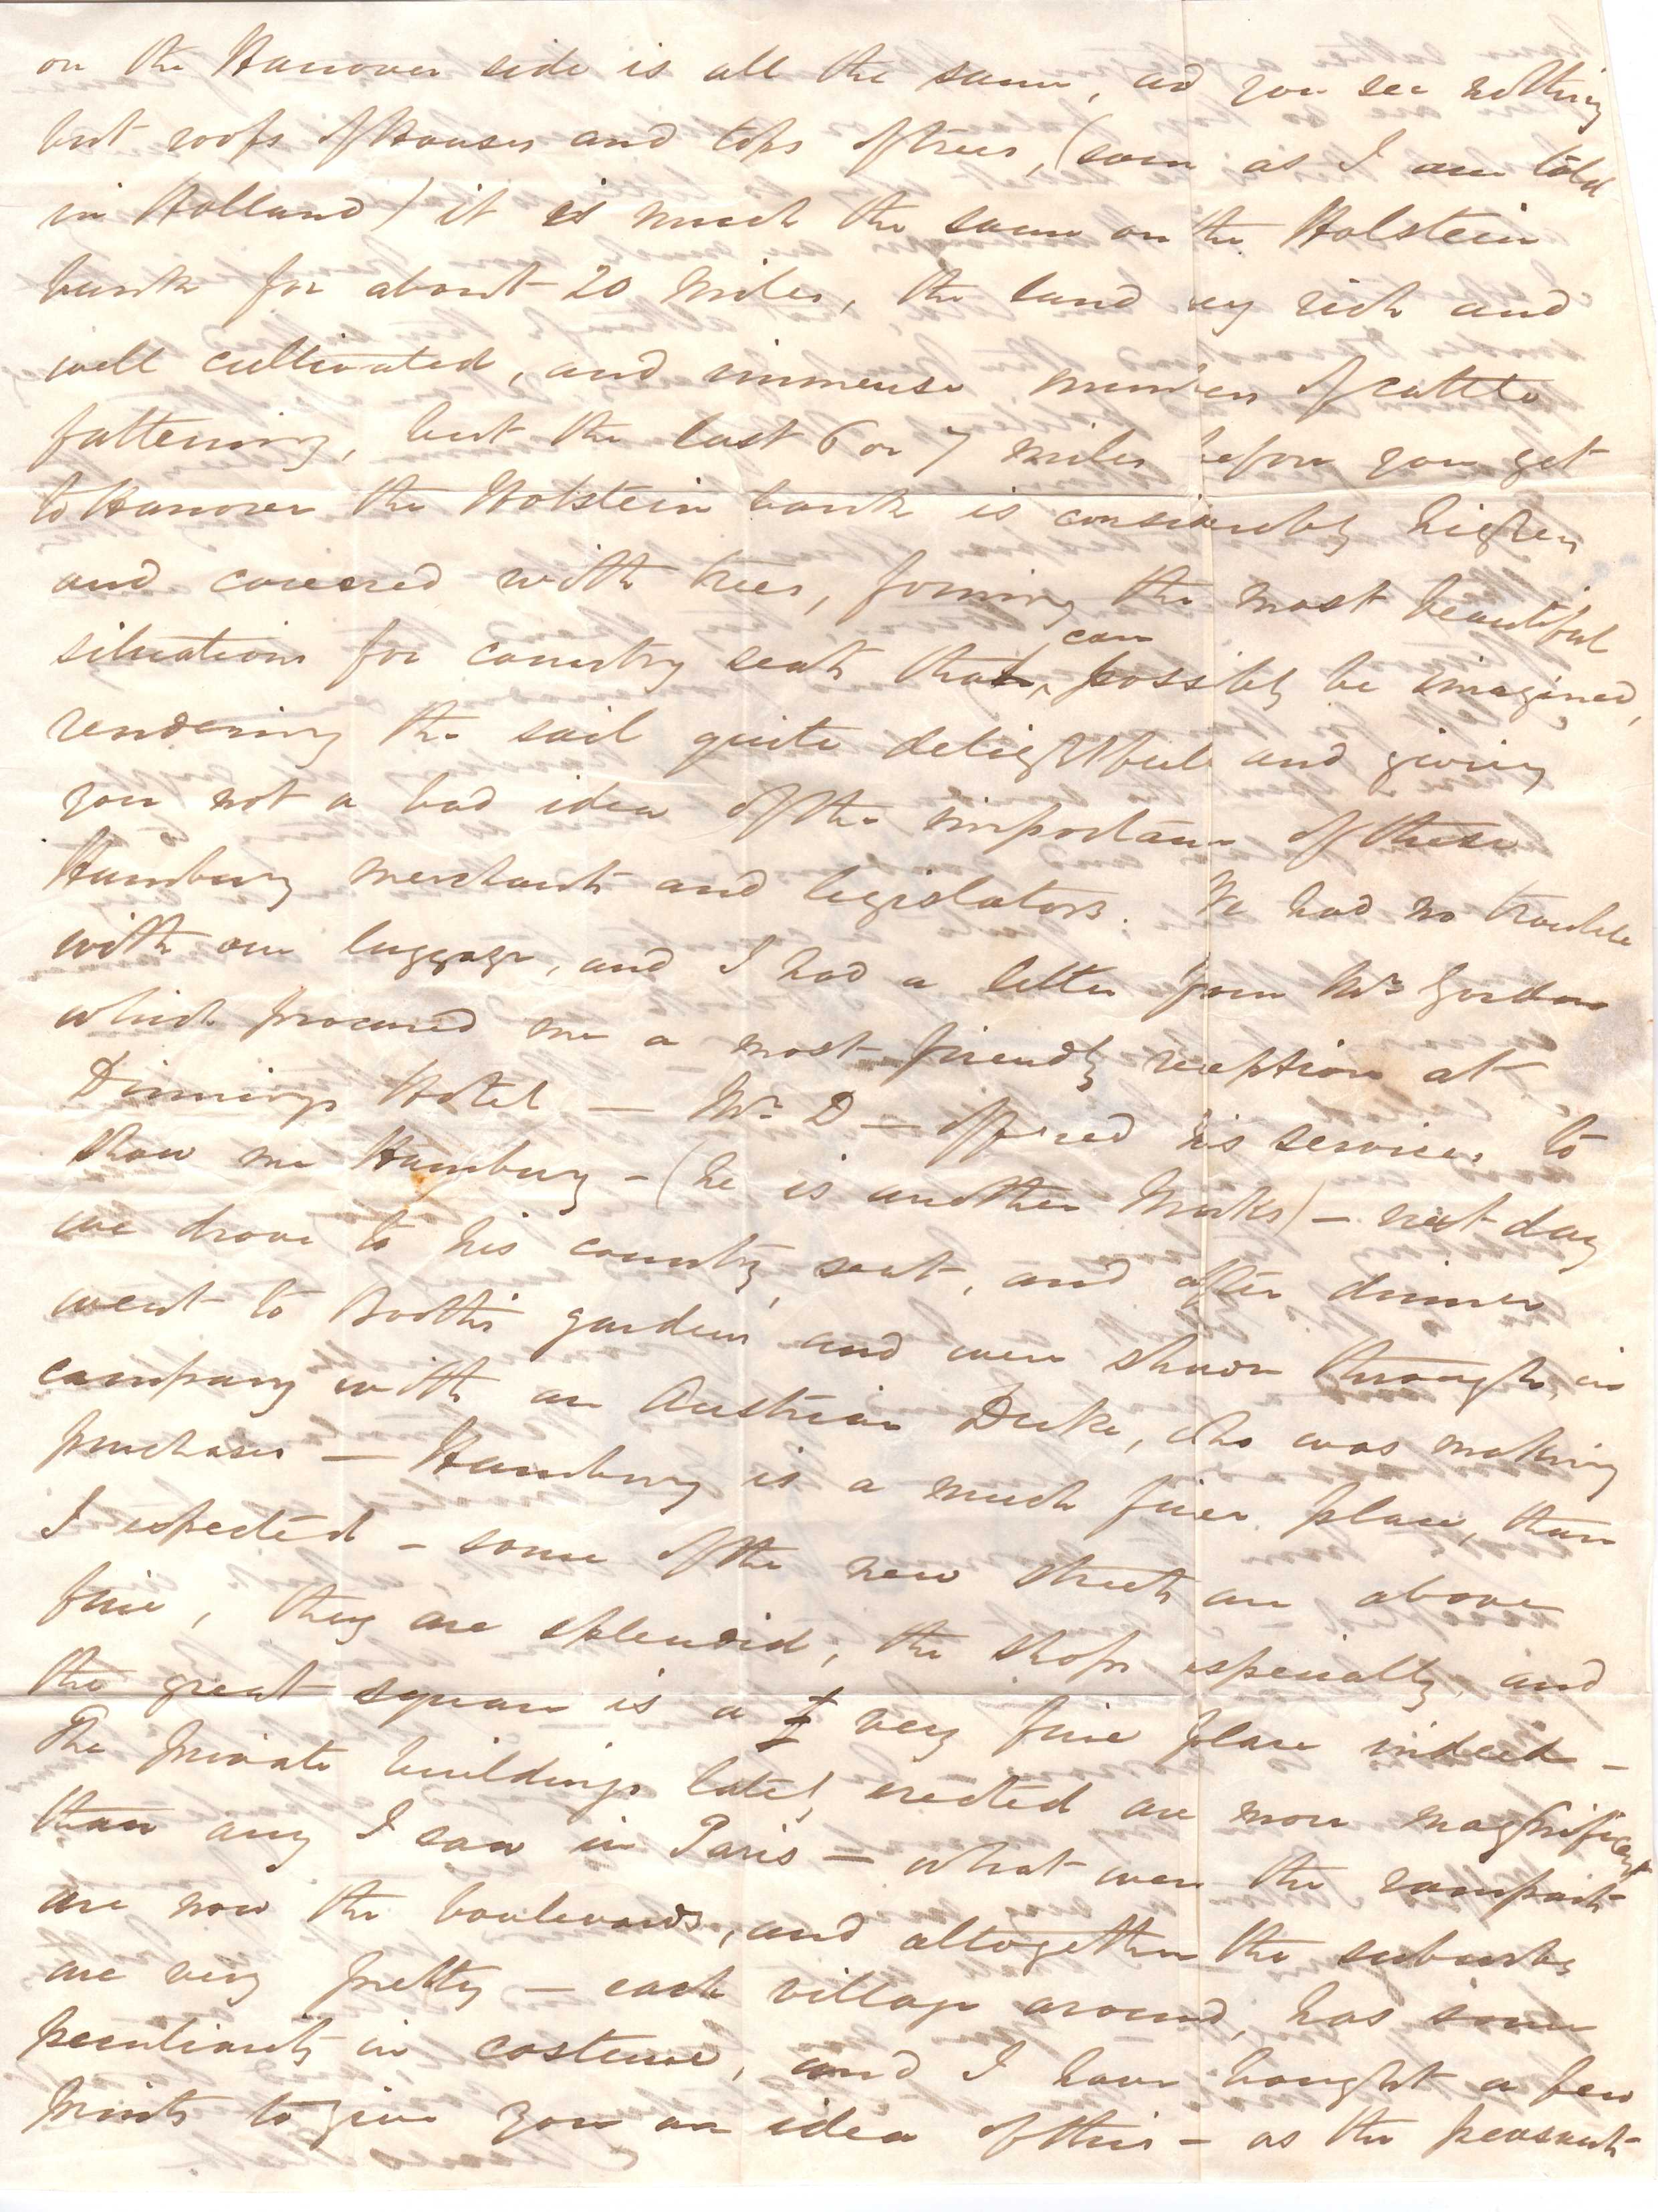 on the Hanover side is all the same, and you see nothing
but roofs of Houses and tops of trees, (same as I am told
in Holland) it is much the same on the Holstein
bank for about 20 miles, the land very rich and
well cultivated, and immense numbers of cattle
fattening, but the last 6 or 7 miles before you get
to Hanover the Holstein bank is considerably higher
and covered with trees, forming the most beautiful
situations for country seats that can possibly be imagined,
rendering the sail quite delightful and giving
you not a bad idea of the importance of these
Hamburg merchants and legislators. We had no trouble
with our luggage, and I had a letter from Mrs Gordon
which procured me a most friendly reception at
Dinnings Hotel — Mr. D — offered his services to
show me Hamburg – (he is another Marks) – next day
we drove to his country seat, and after dinner
went to Booth's gardens and were shown through, in
company with an Austrian Duke, who was making
purchases — Hamburg is a much finer place, than
I expected – some of the new streets are above
fine, they are splendid, the shops especially, and
the great square is a very fine place indeed –
The private buildings lately erected are more magnificent
than any I saw in Paris – what were the ramparts
are now the boulevards, and altogether the suburbs
are very pretty – each village around, has some
peculiarity in costume, and I have bought a few
prints to give you an idea of this – as the peasants